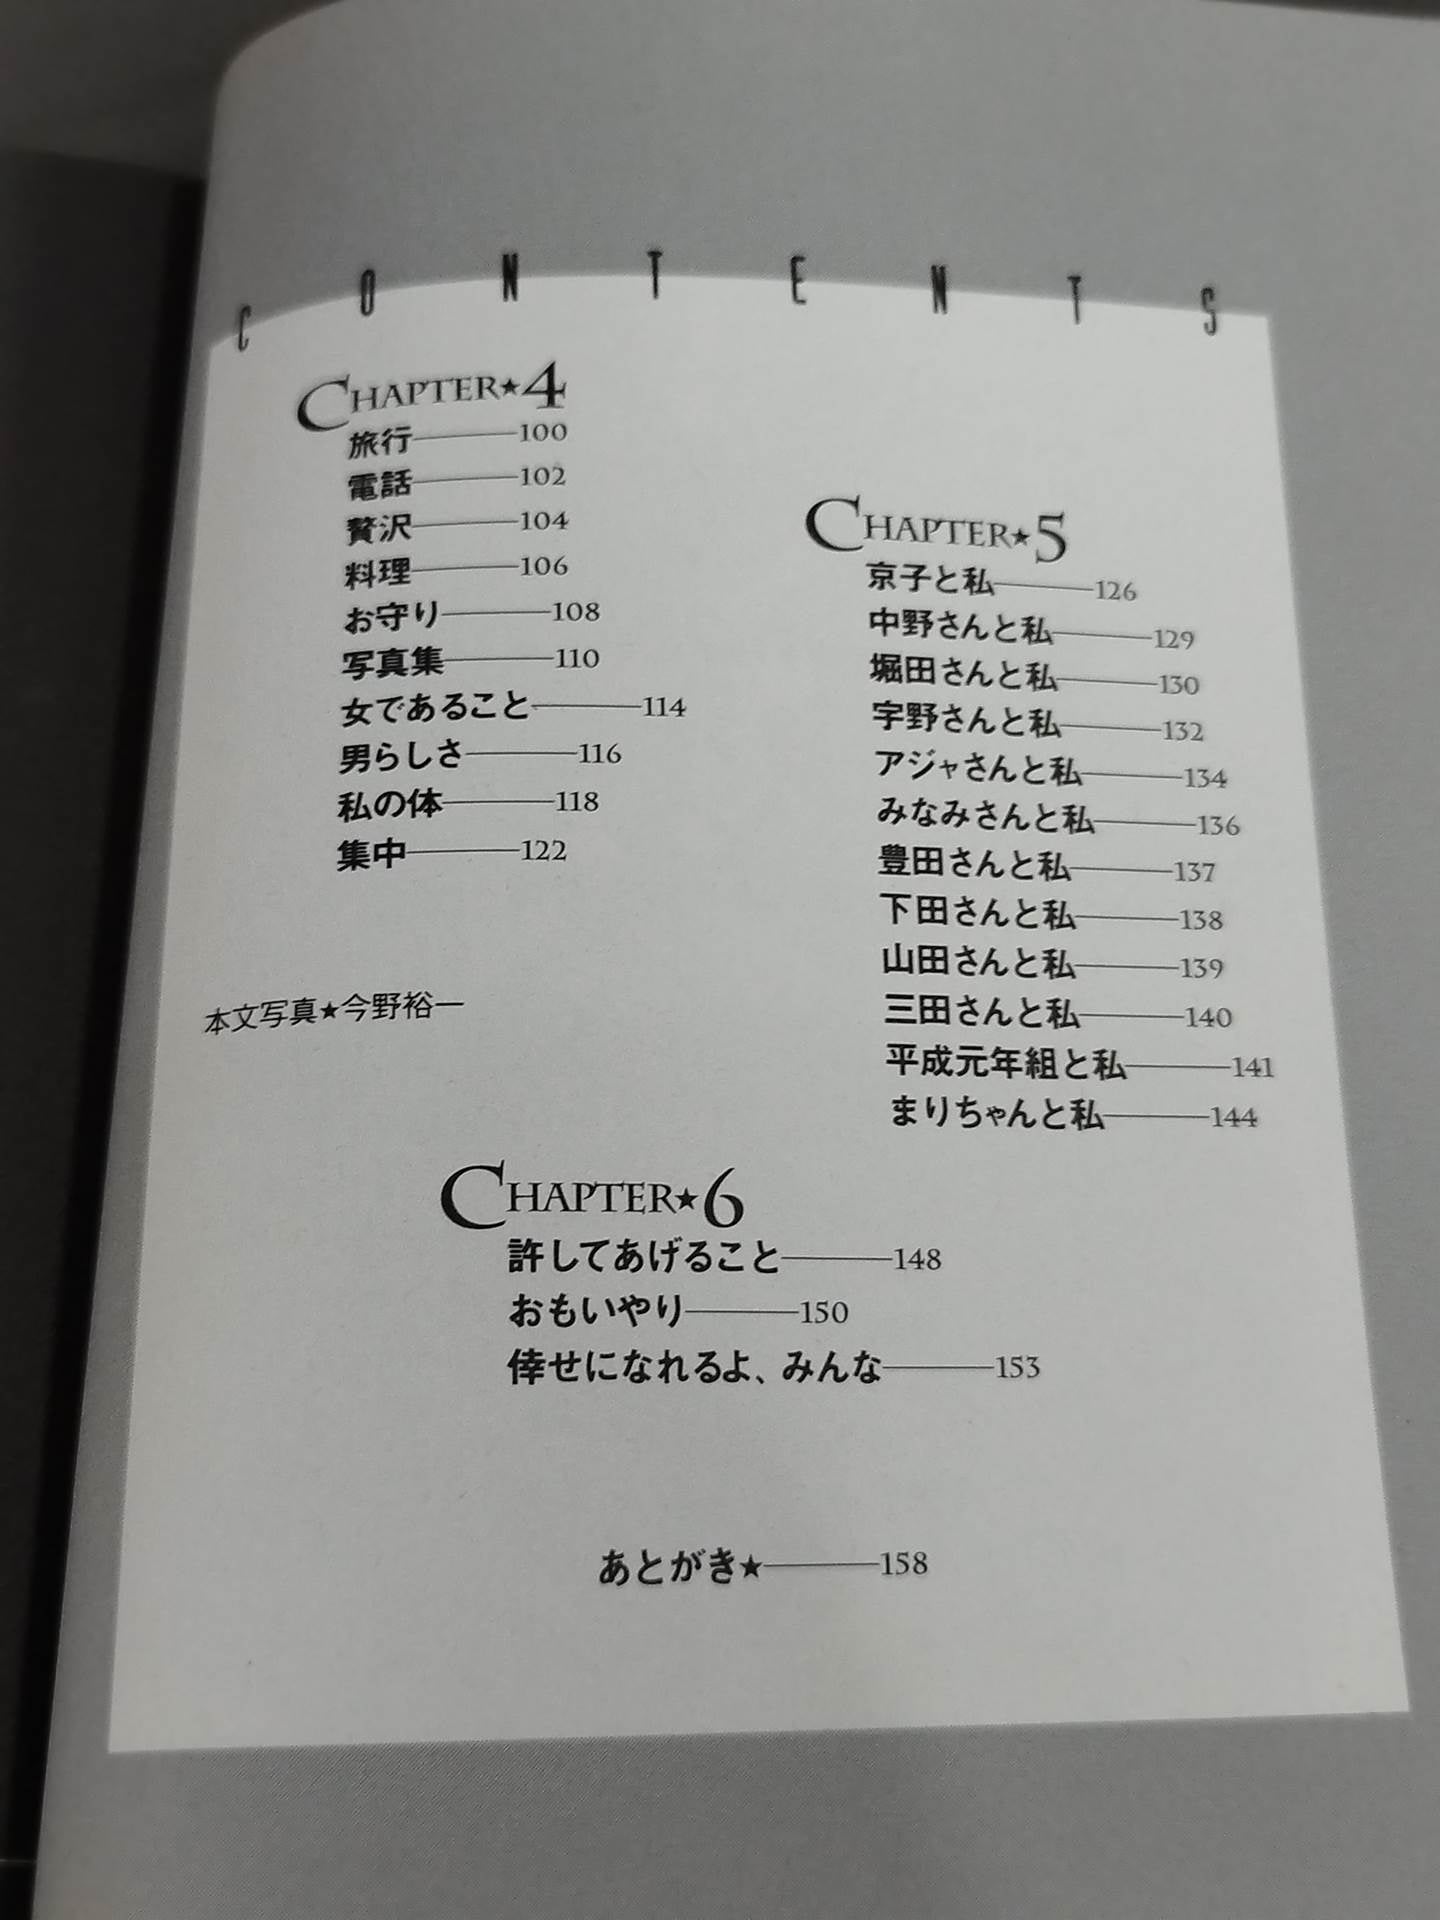 CONTENTS
CHAPTER★4
旅行――100
電話――102
贅沢――104
料理――106
お守り――108
写真集――110
女であること――114
男らしさ――116
私の体――118
集中――122
本文写真★今野裕一
CHAPTER★5
京子と私――126
中野さんと私――129
堀田さんと私――130
宇野さんと私――132
アジャさんと私――134
みなみさんと私――136
豊田さんと私――137
下田さんと私――138
山田さんと私――139
三田さんと私――140
平成元年組と私――141
まりちゃんと私――144
CHAPTER★6
許してあげること――148
おもいやり――150
倖せになれるよ、みんな――153
あとがき★――158